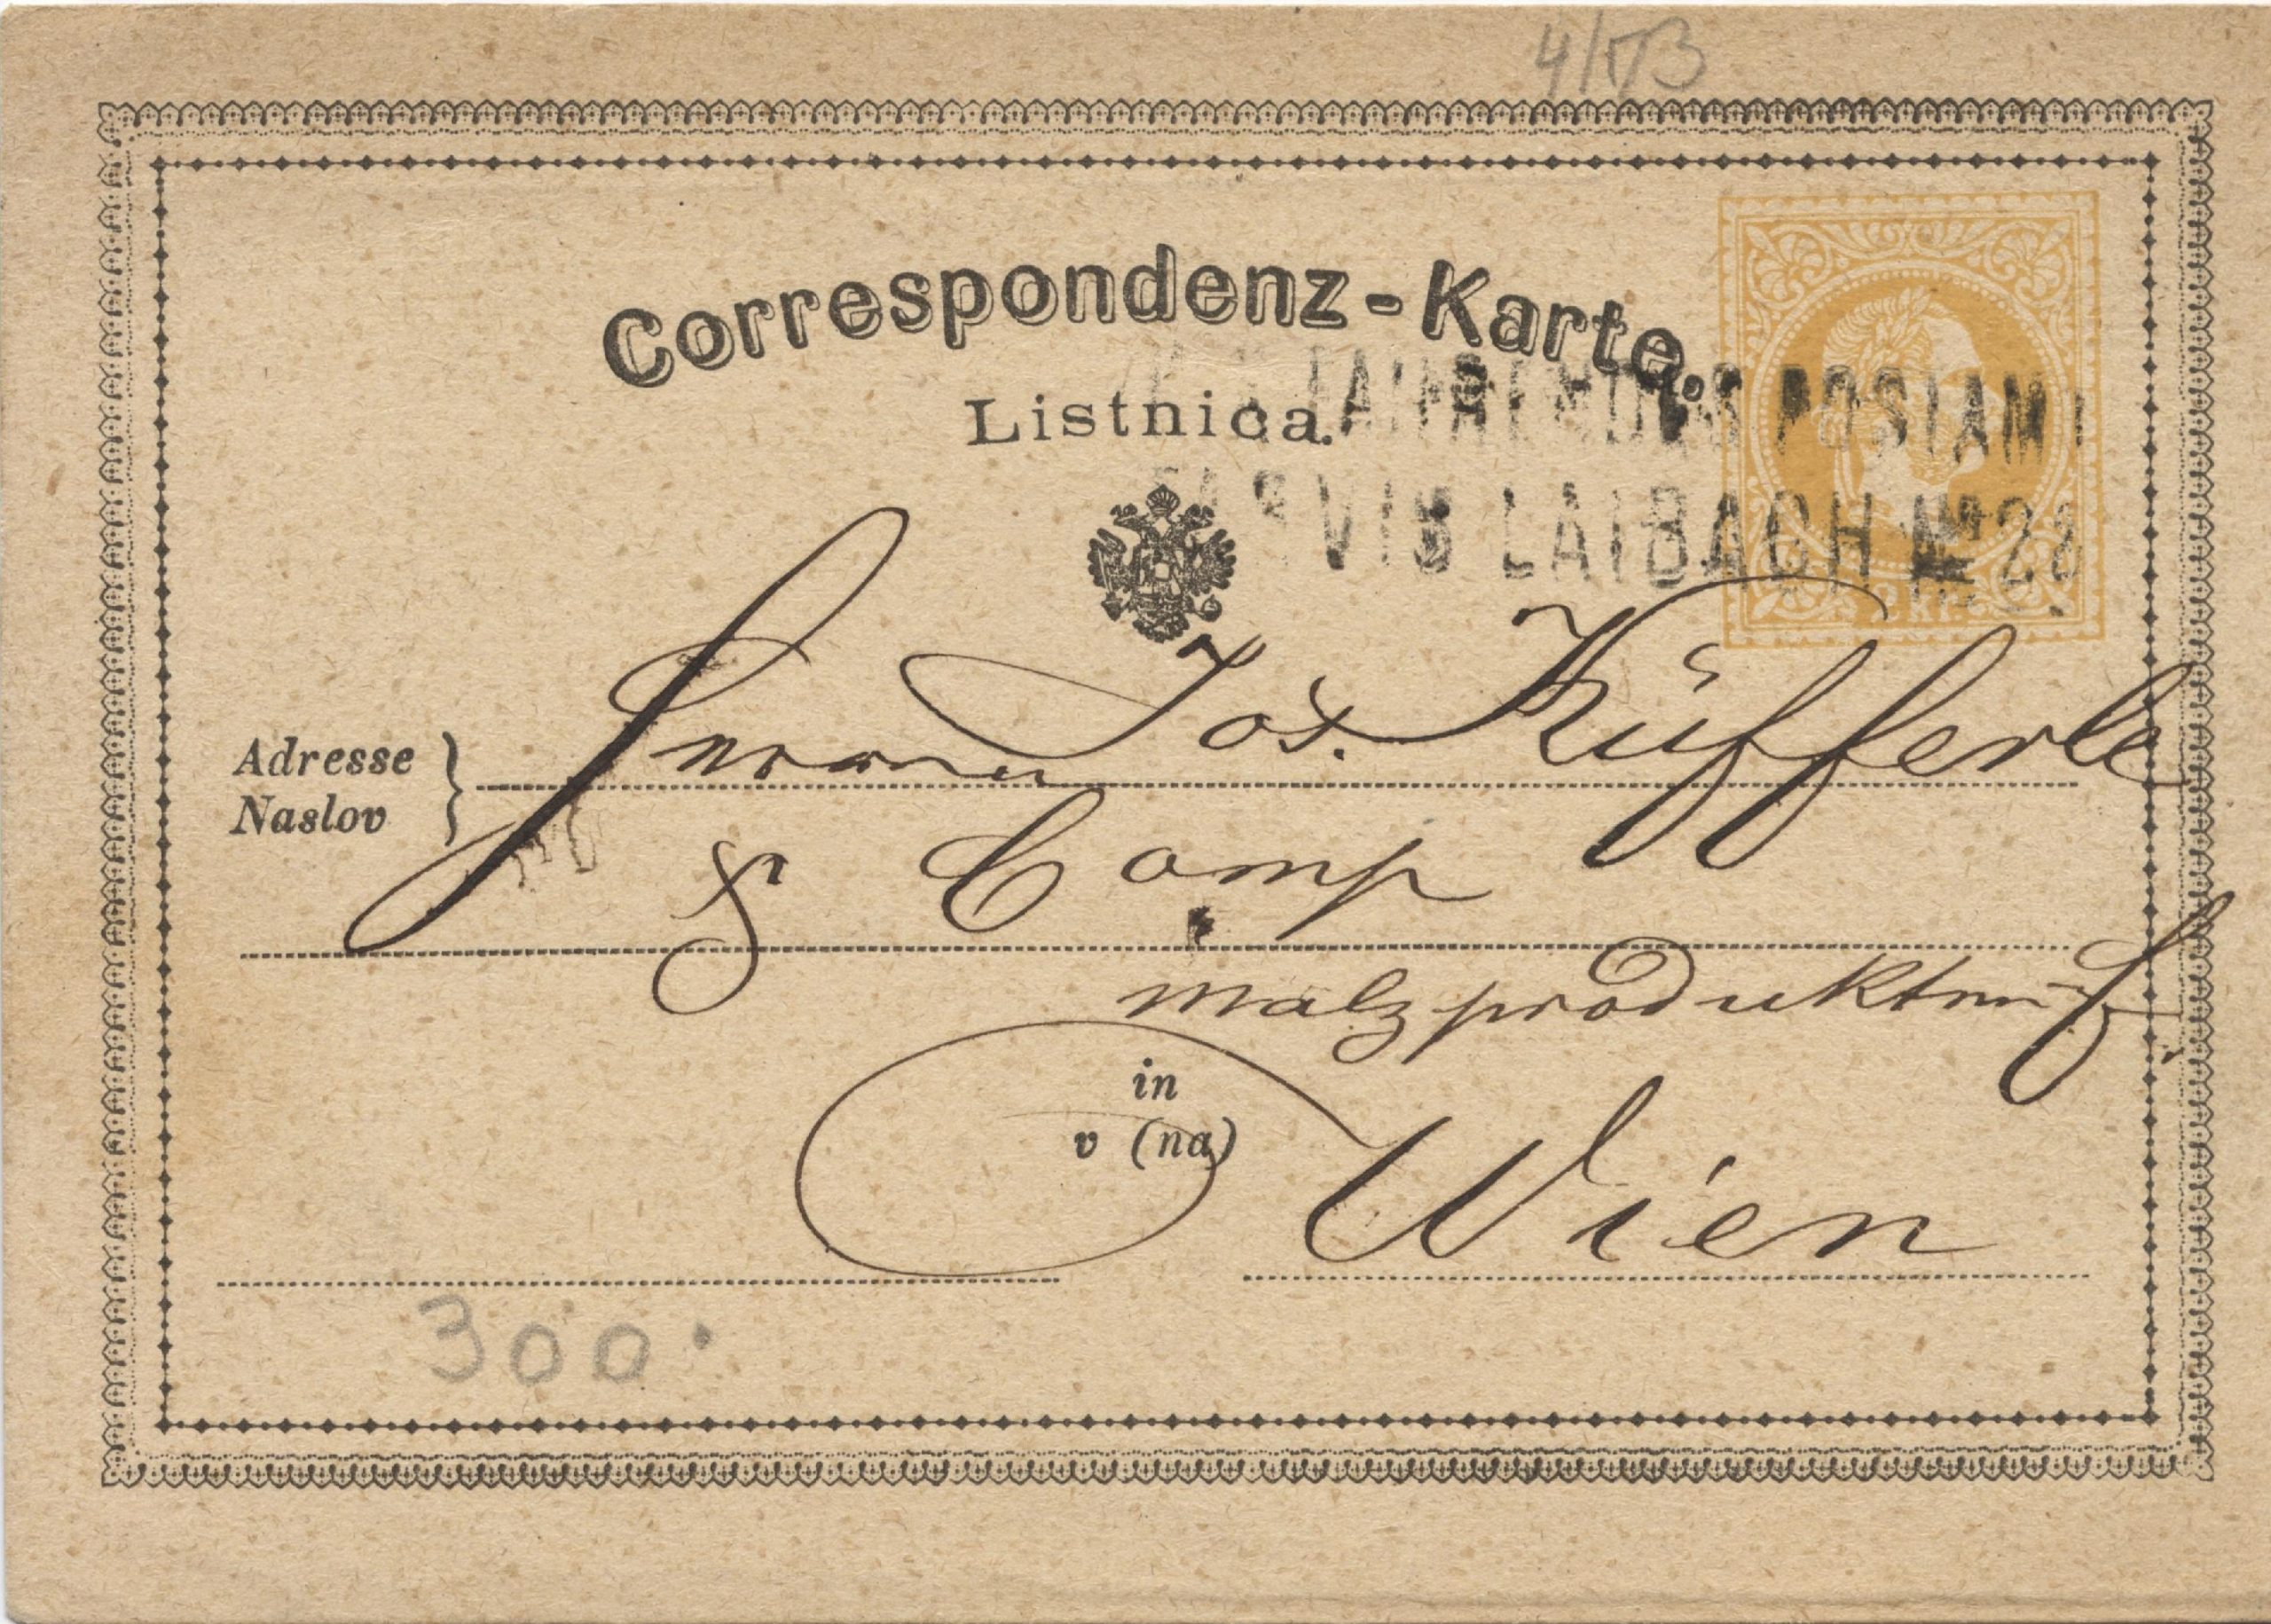 4/73
Correspondenz-Karte.
Listnica.
FAHRENDES POSTAMT
TARVIS LAIBACH No 22
Adresse
Naslov
Jos. Küfferle
& Comp
Malzprodukten
in
v (na)
Wien
300.